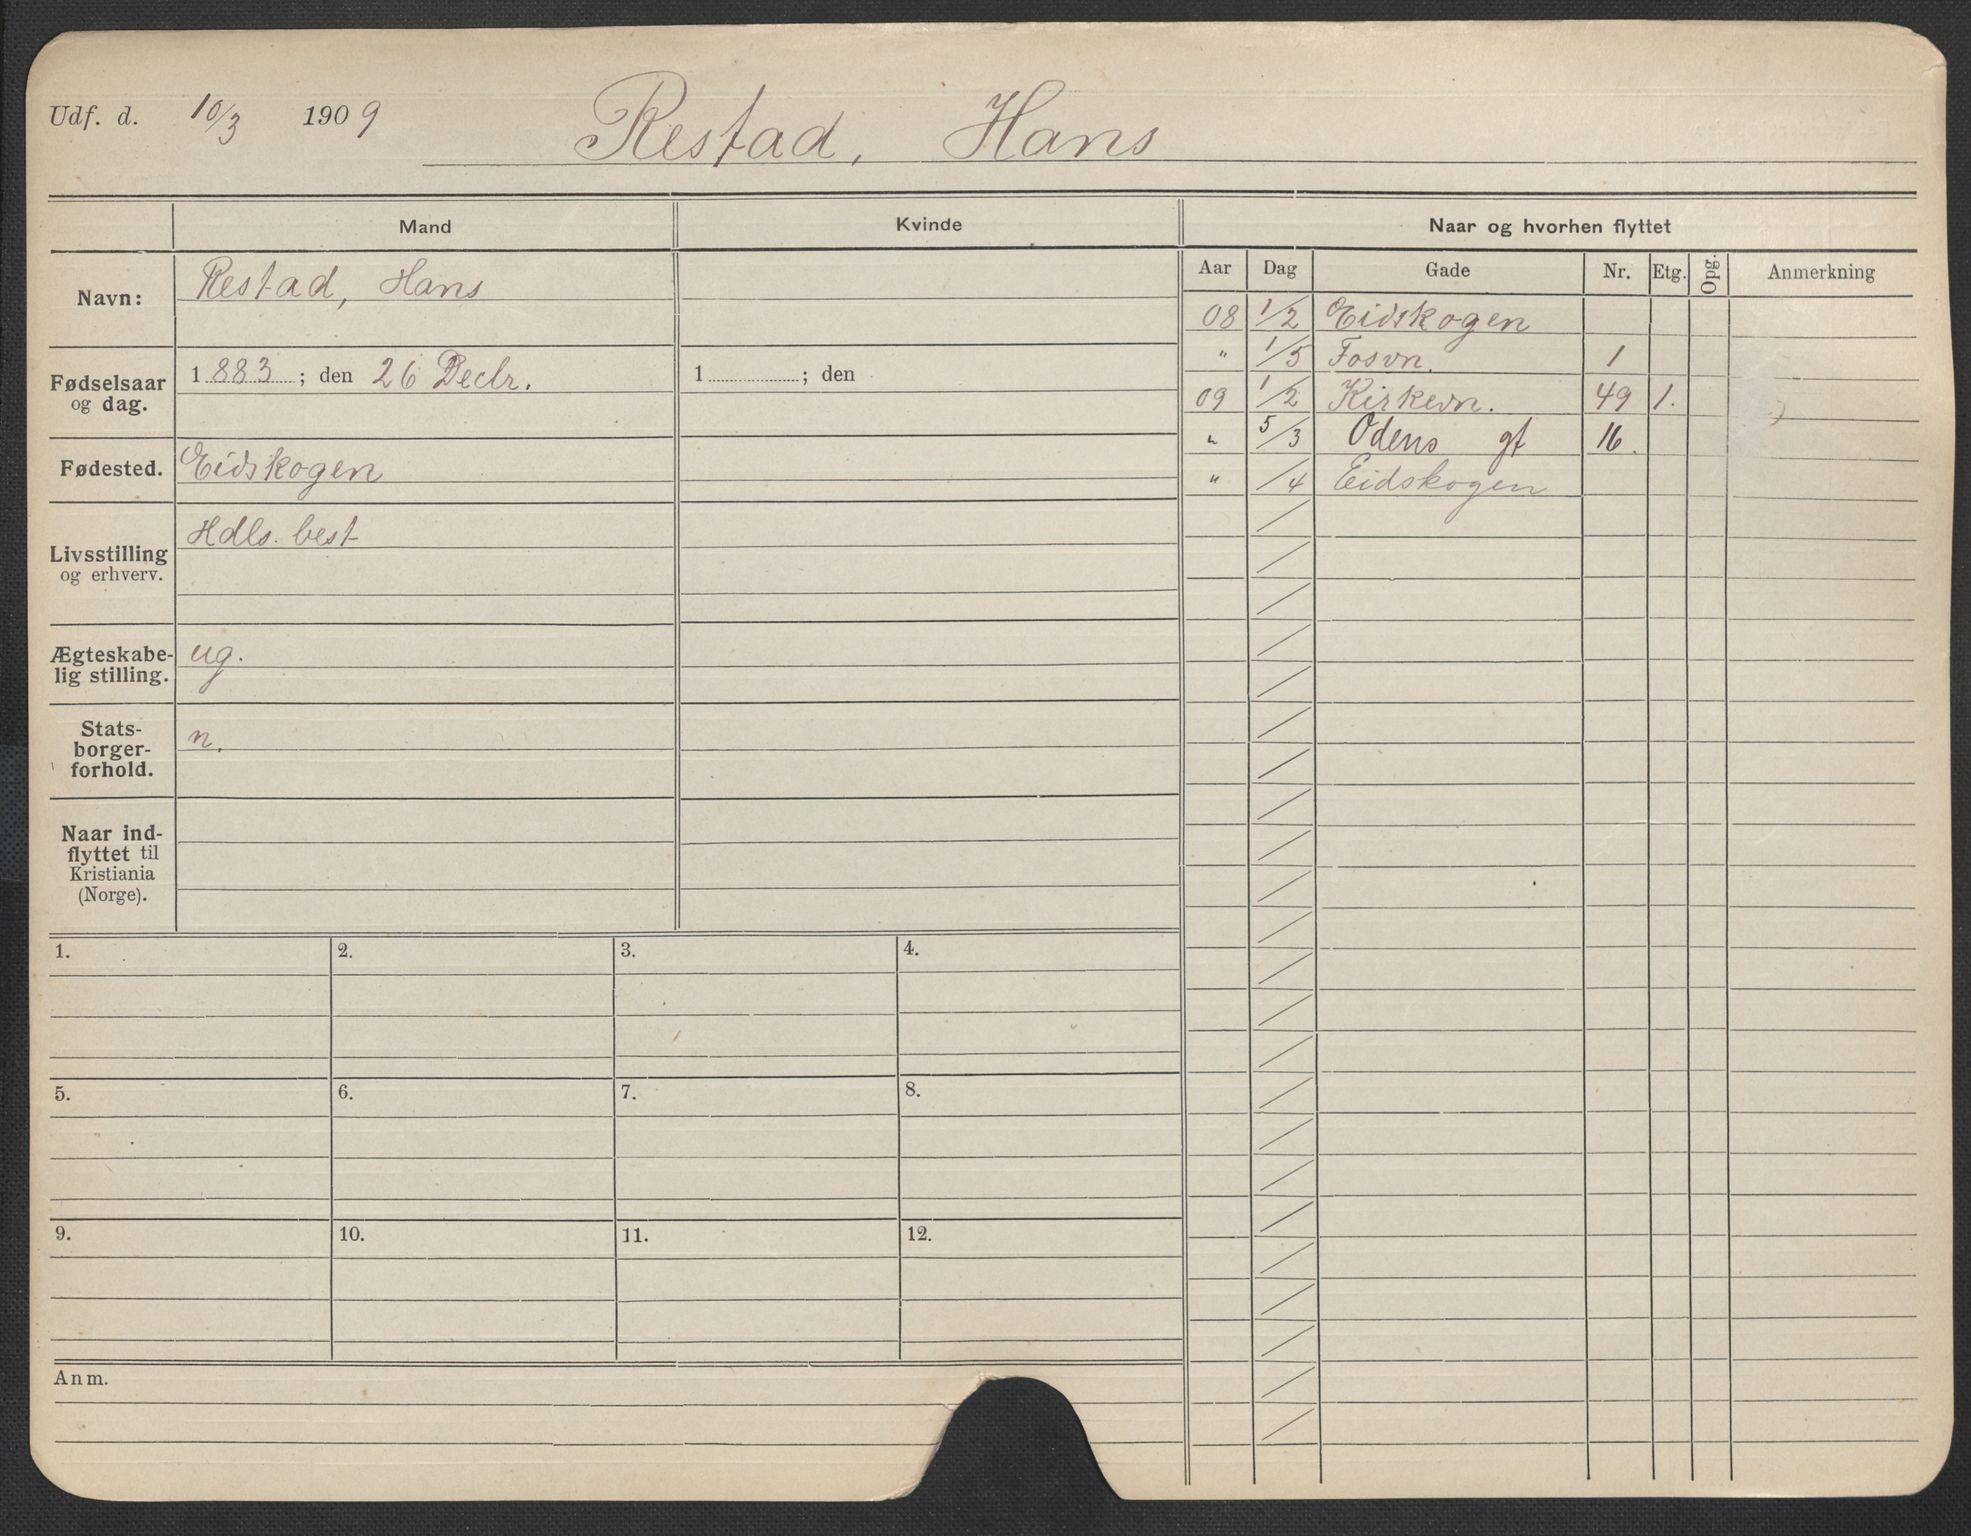 Udf. d. 10/3 1909 Restad, Hans
Mand Kvinde Naar og hvorhen flyttet
Aar Dag Gade Nr. Etg. Opg. Anmerkning
Navn: Restad, Hans
Fødselsaar og dag. 1883; den 26 Decbr. 1 ; den
Fødested. Eidskogen
Livsstilling og erhverv. Hdls. best
Ægteskabe-
lig stilling. ug.
Stats-
borger-
forhold. n.
Naar ind-
flyttet til
Kristiania
(Norge).
08 1/2 Eidskogen
" 1/5 Fosvn. 1
09 1/2 Kirkevn. 49 1.
" 5/3 Odens gt 16.
" /4 Eidskogen
1. 2. 3. 4.
5. 6. 7. 8.
9. 10. 11. 12.
Anm.